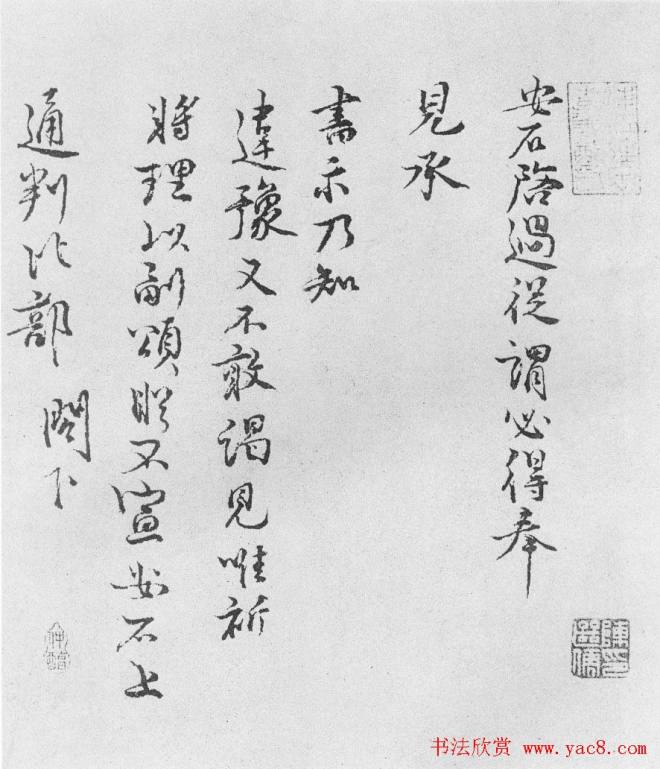 安石啓過從謂必得奉
見承
書示乃知
違豫又不敢謁見唯祈
將理以副頌盼不宣安石上
通判比部 閣下
书法欣赏 www.yac8.com